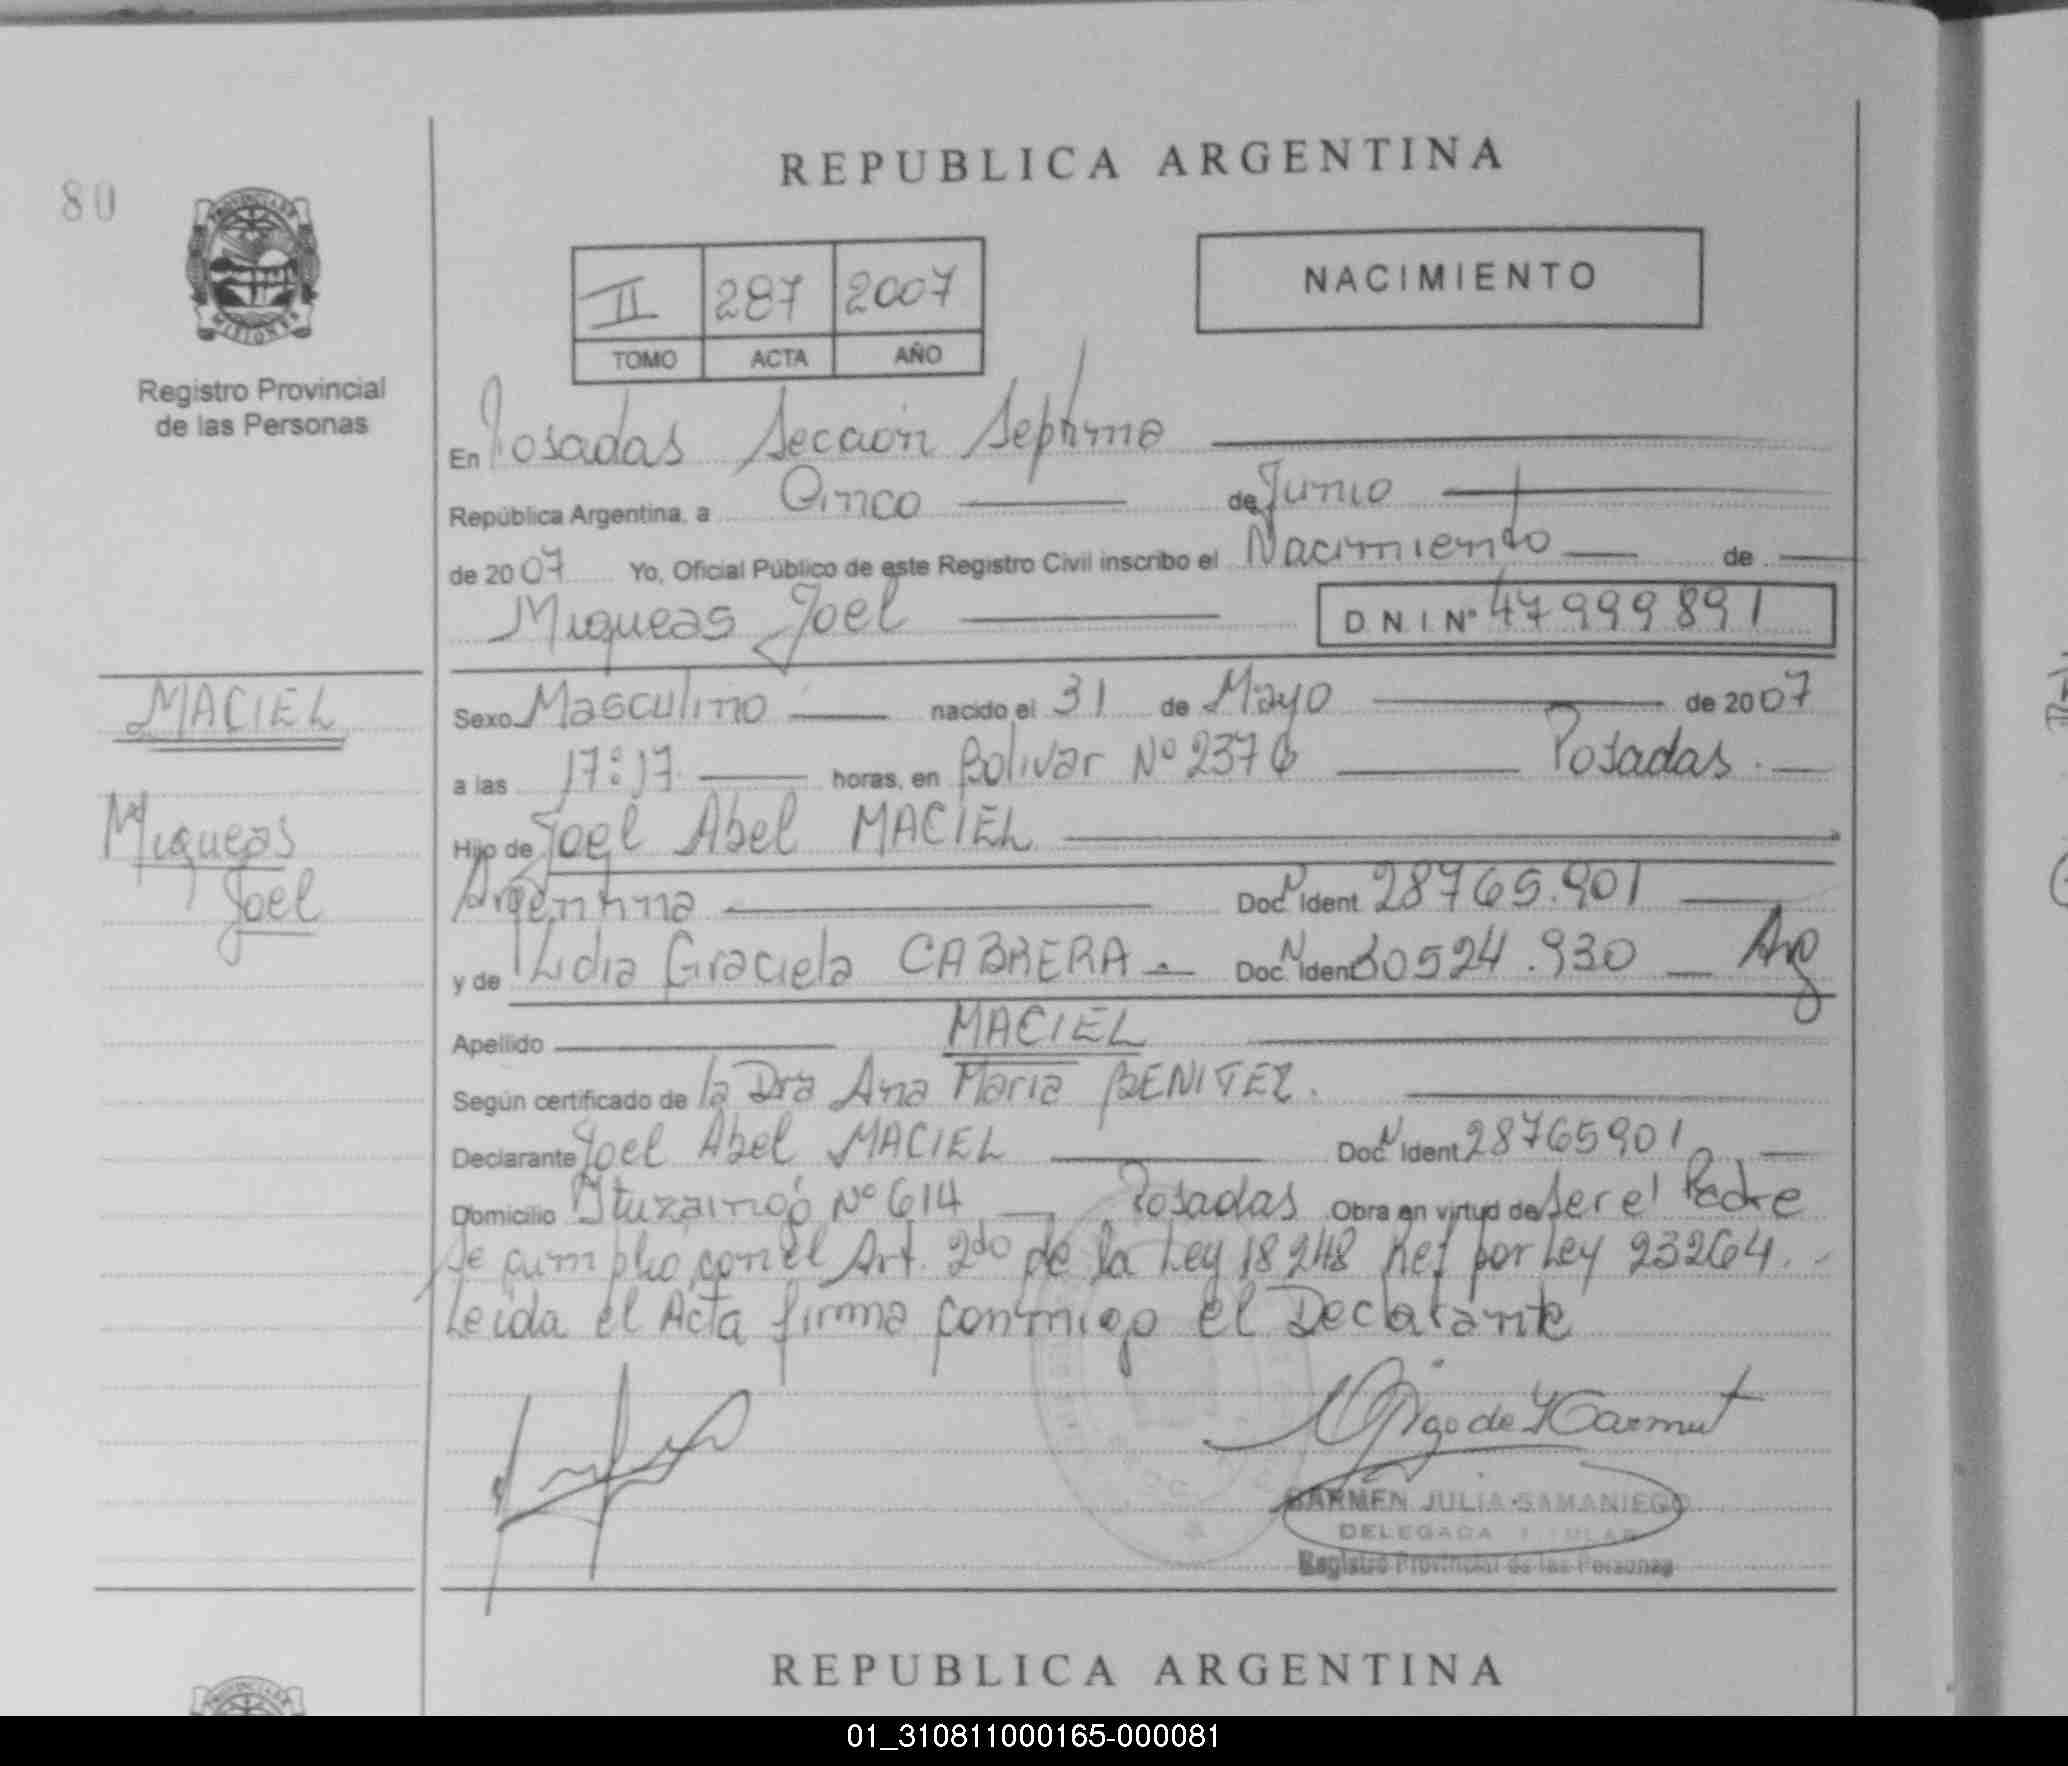 80
REPUBLICA ARGENTINA
PROVINCIA DE
MISIONES
II 287 2007
TOMO ACTA AÑO
NACIMIENTO
Registro Provincial
de las Personas
En Posadas Sección Séptima
República Argentina, a Cinco de Junio
de 2007 Yo, Oficial Público de este Registro Civil inscribo el Nacimiento de
Miqueas Joel D.N.I. Nº 47999891
MACIEL
Miqueas
Joel
Sexo Masculino nacido el 31 de Mayo de 2007
a las 17:17 horas, en Bolivar Nº 2376 Posadas.
Hijo de Joel Abel MACIEL
Argentina Doc. N Ident 28765.901
y de Lidia Graciela CABRERA.- Doc. N Ident 30524.930 Arg
Apellido MACIEL
Según certificado de la Dra Ana Maria BENITEZ.
Declarante Joel Abel MACIEL Doc. N Ident 28765901
Domicilio Ituzaingó Nº 614 Posadas Obra en virtud de Ser el Padre
Se cumplió con el Art. 2do de la Ley 18248 Ref por Ley 23264.-
Leida el Acta firma conmigo el Declarante
CARMEN JULIA SAMANIEGO
DELEGADA TITULAR
Registro Provincial de las Personas
REPUBLICA ARGENTINA
01_310811000165-000081